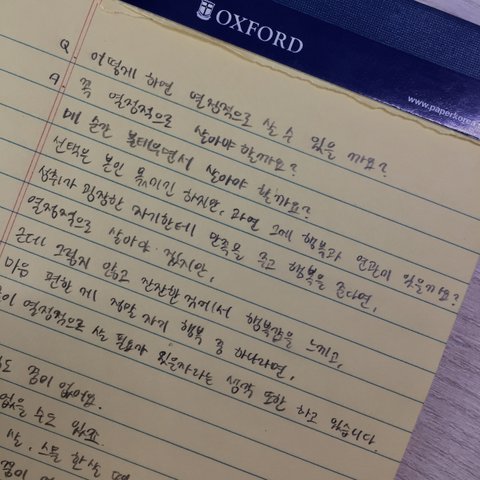 OXFORD
www.paperkorea
Q. 어떻게 하면 열정적으로 살 수 있을 까요?
A. 꼭 열정적으로 살아야 할까요?
매 순간 불태우면서 살아야 할까요?
선택은 본인 몫이긴 하지만, 과연 그게 행복과 연관이 있을까요?
성취가 굉장한 자기한테 만족을 주고 행복을 준다면,
열정적으로 살아야 겠지만,
근데 그렇지 않고 잔잔한 거에서 행복감을 느끼고,
마음 편한 게 정말 자기 행복 중 하나라면,
이 열정적으로 살 필요가 있을까라는 생각 또한 하고 있습니다.
도 꿈이 없어요.
없을 수도 있죠.
살, 스물 한 살 때
꿈이